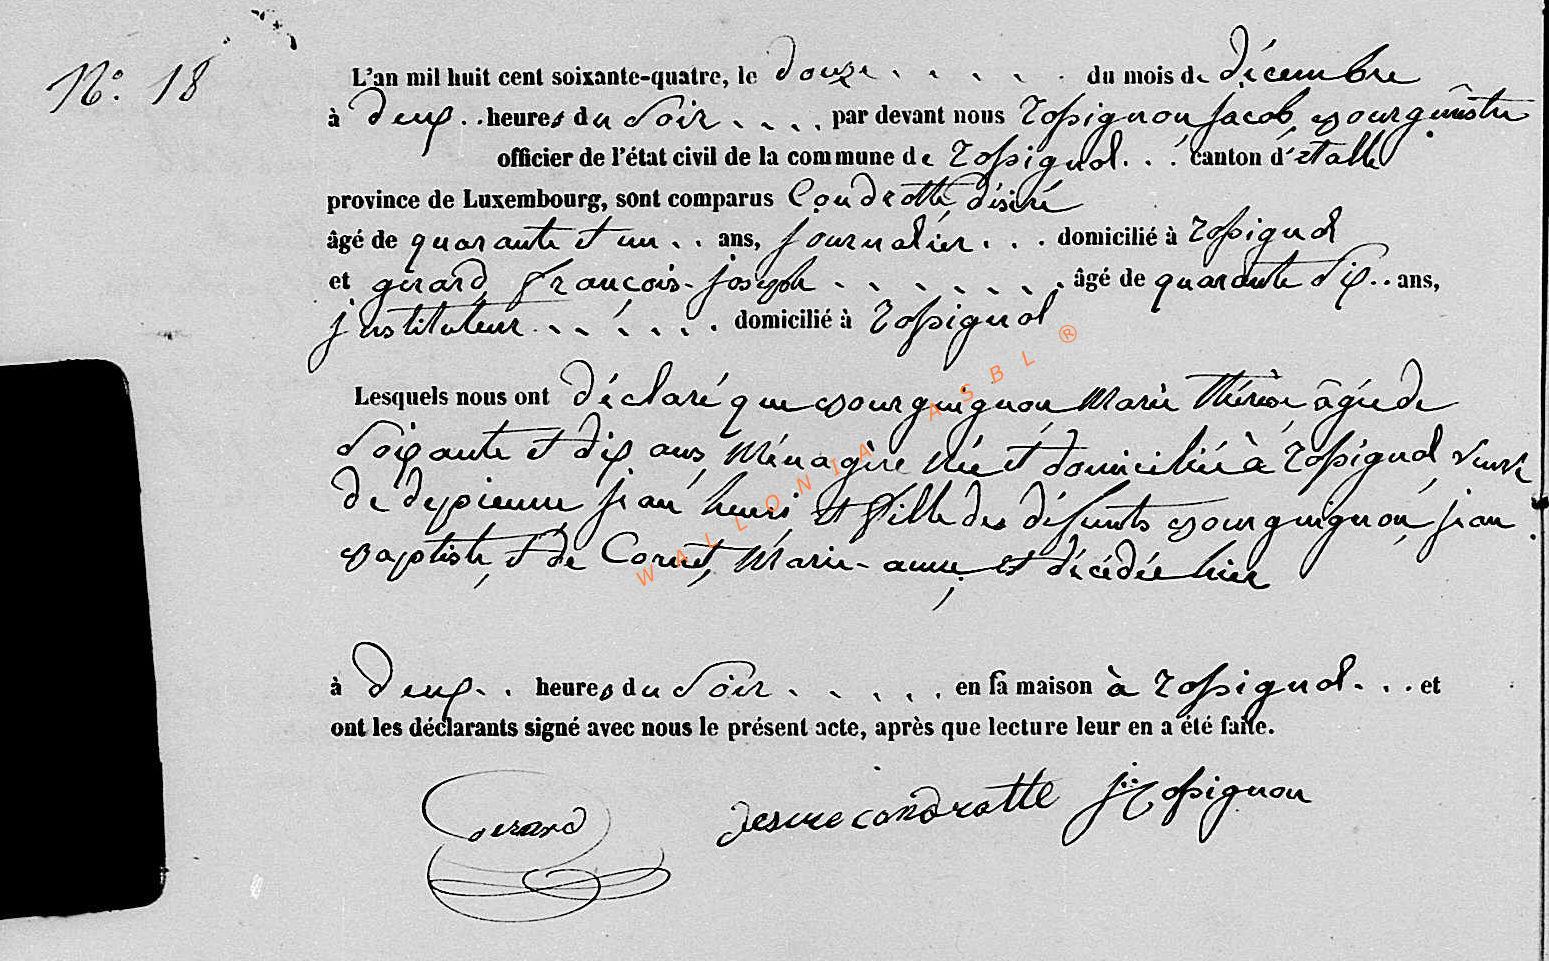 N.° 18
L'an mil huit cent soixante-quatre, le douze . . . . . du mois de décembre
à deux . . heures du soir . . . . par devant nous Rossignon Jacob, Bourgmestre
officier de l'état civil de la commune de Rossignol . . . canton d'étalle
province de Luxembourg, sont comparus Condrotte, désiré
âgé de quarante et un . . ans, journalier . . . domicilié à Rossignol
et gérard, françois-joseph . . . . . . . . âgé de quarante dix . . ans,
instituteur . . . . . . domicilié à Rossignol
Lesquels nous ont déclaré que Bourguignon, Marie Thérèse, âgée de
soixante et dix ans, Ménagère née et domiciliée à Rossignol, veuve
de jean henri et fille des défunts Bourguignon, jean
Baptiste, et de Cornet, Marie-anne, est décédée hier
à deux . . heures du soir . . . . . en sa maison à Rossignol . . . et
ont les déclarants signé avec nous le présent acte, après que lecture leur en a été faite.
Gerard desire condrotte J: Rossignon
WALLONIA ASBL ®